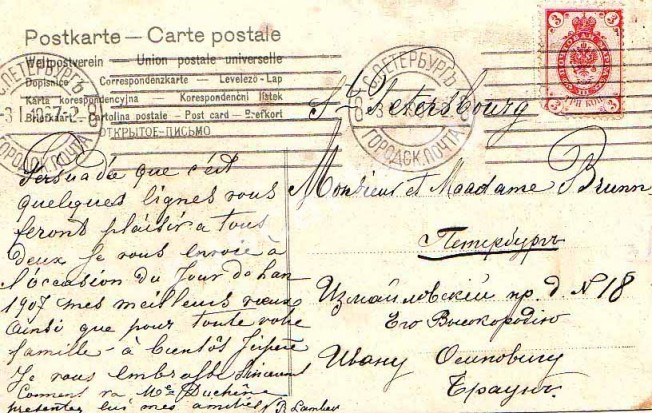 Postkarte — Carte postale
Weltpostverein — Union postale universelle
Dopisnice — Correspondenzkarte — Levelezo-Lap
Karta korespondencyjna — Korespondenční lístek
Briefkart — Cartolina postale — Post card — Brefkort
ОТКРЫТОЕ-ПИСЬМО
С.ПЕТЕРБУРГЪ
ГОРОДСК.ПОЧТА
С.ПЕТЕРБУРГЪ
ГОРОДСК.ПОЧТА
3
3
3
3
St-Petersbourg
Monsieur et Maadame Brunn
Петербургъ
Измайловскій пр. д. № 18
Его Высокородію
Ивану Осиповичу
Браунъ.
Persuadée que c'est
quelques lignes vous
feront plaisir a tous
deux je vous envoie à
l'occasion du Jour de l'an
1907 mes meilleurs vœux
ainsi que pour toute votre
famille - à bientôt j'éspère
Je vous embrasse
Comment va Mme Duchêne
presentez lui mes amitiés R Lambert